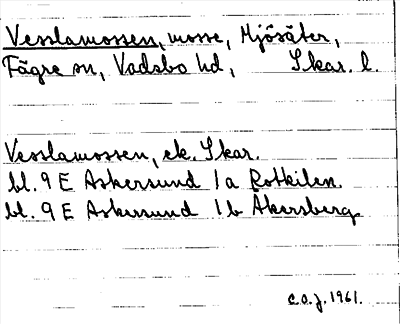 Vesslamossen, mosse, Mjösäter,
Fägre sn, Vadsbo hd, Skar. l.
Vesslamossen, ek. Skar.
bl. 9 E Askersund 1a Rotkilen.
bl. 9 E Askersund 1b Åkersberg.
C.O.J. 1961.